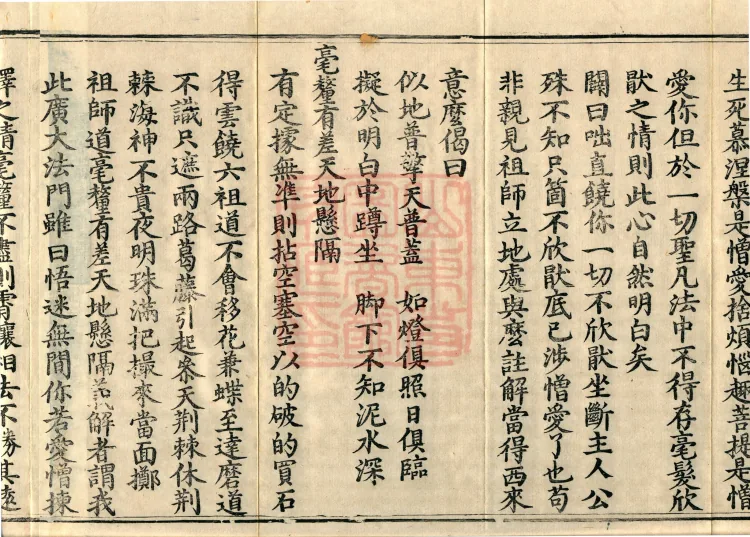 生死慕涅槃是憎愛捨煩惱趣菩提是憎
愛你但於一切聖凡法中不得存毫髮欣
猒之情則此心自然明白矣
闢曰咄直饒你一切不欣猒坐斷主人公
殊不知只箇不欣猒底已涉憎愛了也苟
非親見祖師立地處與麼註解當得西來
意麼偈曰
似地普擎天普蓋　如燈俱照日俱臨
擬於明白中蹲坐　脚下不知泥水深
毫釐有差天地懸隔
有定據無準則拈空塞空以的破的買石
得雲饒六祖道不會移花兼蝶至達磨道
不識只遮兩路葛藤引起叅天荆棘休荆
棘海神不貴夜明珠滿把撮來當面擲
祖師道毫釐有差天地懸隔義解者謂我
此廣大法門雖曰悟迷無間你若愛憎揀
擇之情毫釐不盡則霄壤相去不勝其遠